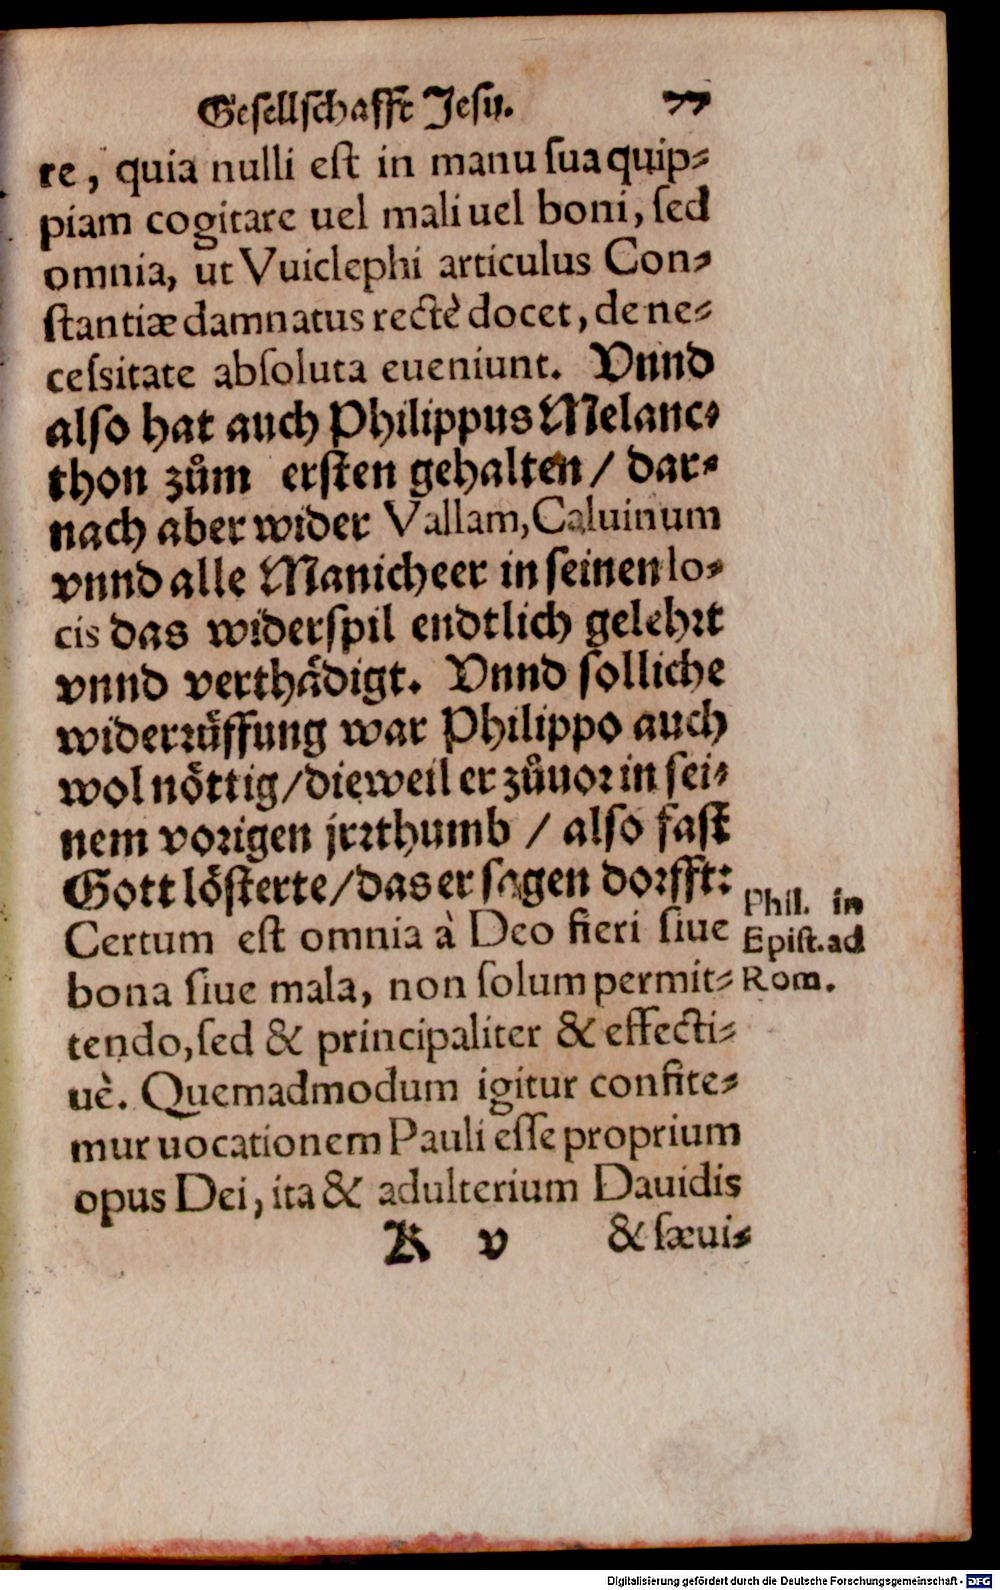 Gesellschafft Jesu. 77
re, quia nulli est in manu sua quip-
piam cogitare uel mali uel boni, sed
omnia, ut Vuiclephi articulus Con-
stantiæ damnatus rectè docet, de ne-
cessitate absoluta eueniunt. Vnnd
also hat auch Philippus Melanc-
thon zům ersten gehalten / dar-
nach aber wider Vallam, Caluinum
vnnd alle Manicheer in seinen lo-
cis das widerspil endtlich gelehrt
vnnd verthådigt. Vnnd solliche
widerrůffung war Philippo auch
wol nöttig / dieweil er zůuor in sei-
nem vorigen jrrthumb / also fast
Gott lösterte / das er sagen dorfft:
Certum est omnia à Deo fieri siue
bona siue mala, non solum permit-
tendo, sed & principaliter & effecti-
uè. Quemadmodum igitur confite-
mur uocationem Pauli esse proprium
opus Dei, ita & adulterium Dauidis
K v & sæui-
Phil. in
Epist. ad
Rom.
Digitalisierung gefördert durch die Deutsche Forschungsgemeinschaft - DFG